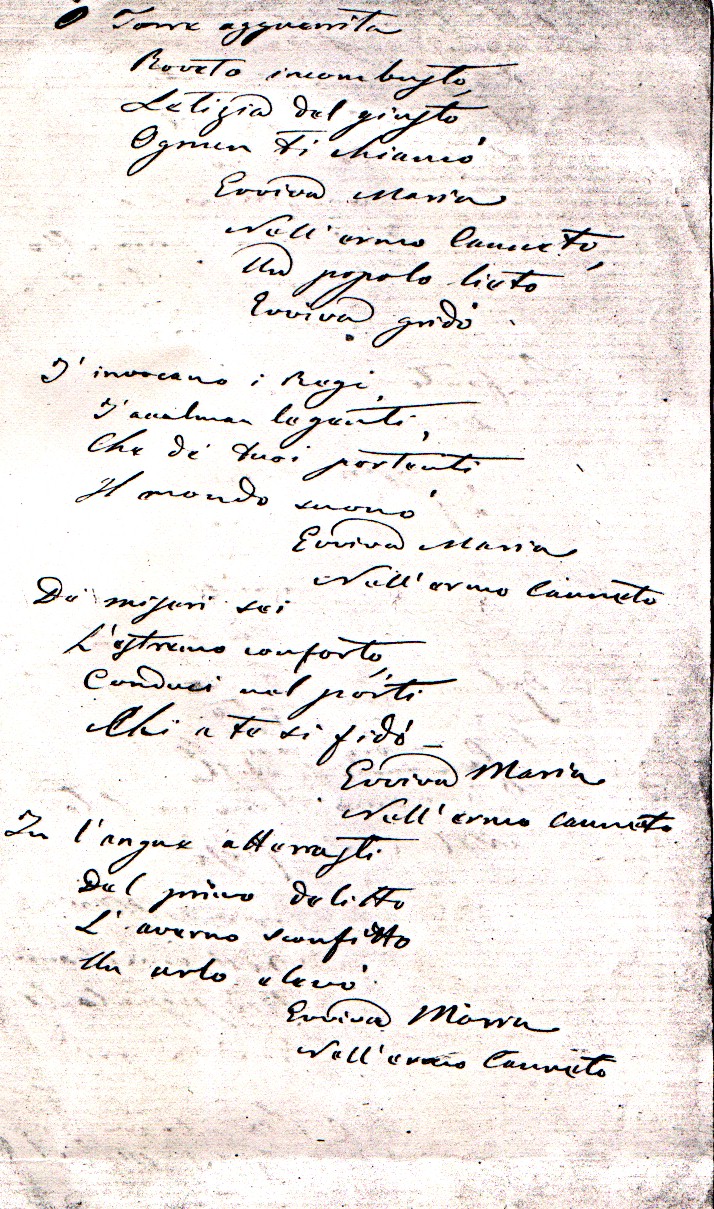 O Torre agguerrita
Roveto incombusto,
Letizia del giusto
Ognun ti chiamò
Evviva Maria
Nell'ermo Canneto,
Un popolo lieto
Evviva gridò.
T'invocano i Regi,
T'acclman le genti,
Che de' tuoi portenti
Il mondo suonò
Evviva Maria
Nell'ermo Canneto
De' miseri sei
L'estremo conforto,
Conduci nel porti
Chi a te si fidò
Evviva Maria
Nell'ermo Canneto
Tu l'angue atterrasti
Del primo delitto
L'averno sconfitto
Un urlo elevò
Evviva Maria
Nell'ermo Canneto